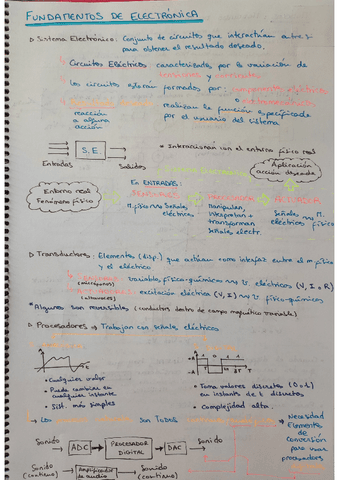 FUNDAMENTOS DE ELECTRÓNICA
Sistema Electrónico: Conjunto de circuitos que interactúan entre sí
para obtener el resultado deseado.
Circuitos Eléctricos caracterizado por la variación de
tensiones y corrientes
Los circuitos estarán formados por:
realizan la función especificada
por el usuario del sistema
reacción
a alguna
acción
S.E.
Entradas
Salidas
* Interaccionan con el entorno físico real
Aplicación
acción deseada
Entorno real
Fenómeno físico
En ENTRADAS:
SENSORES
PROCESADOR
ACTUADOR
M. físico Señales
eléctricas
Manipulan,
interpretan +
transforman
señales electr.
Señales M.
eléctricas físico
Transductores: Elementos (disp.) que actúan como interfaz entre el m físico
y el eléctrico
variable física-químicas V. eléctricas (V, I o R)
(micrófonos)
excitación eléctrica (V, I) V físico-químicas
(altavoces)
* Algunos son reversibles (conductor dentro de campo magnético variable)
Procesadores → Trabajan con señales eléctricas
A
A
-A
T
• Cualquier valor
• Puede cambiar en
cualquier instante
• Sist. más simples
• Toma valores discretos (0 o 1)
en instante de t discretos
• Complejidad alta.
Los
son TODAS
Necesidad
Elementos
de
conversión
para usar
procesadores
Sonido
ADC
PROCESADOR
DIGITAL
DAC
Sonido
Sonido
(continuo)
Amplificador
de audio
Sonido
(continuo)